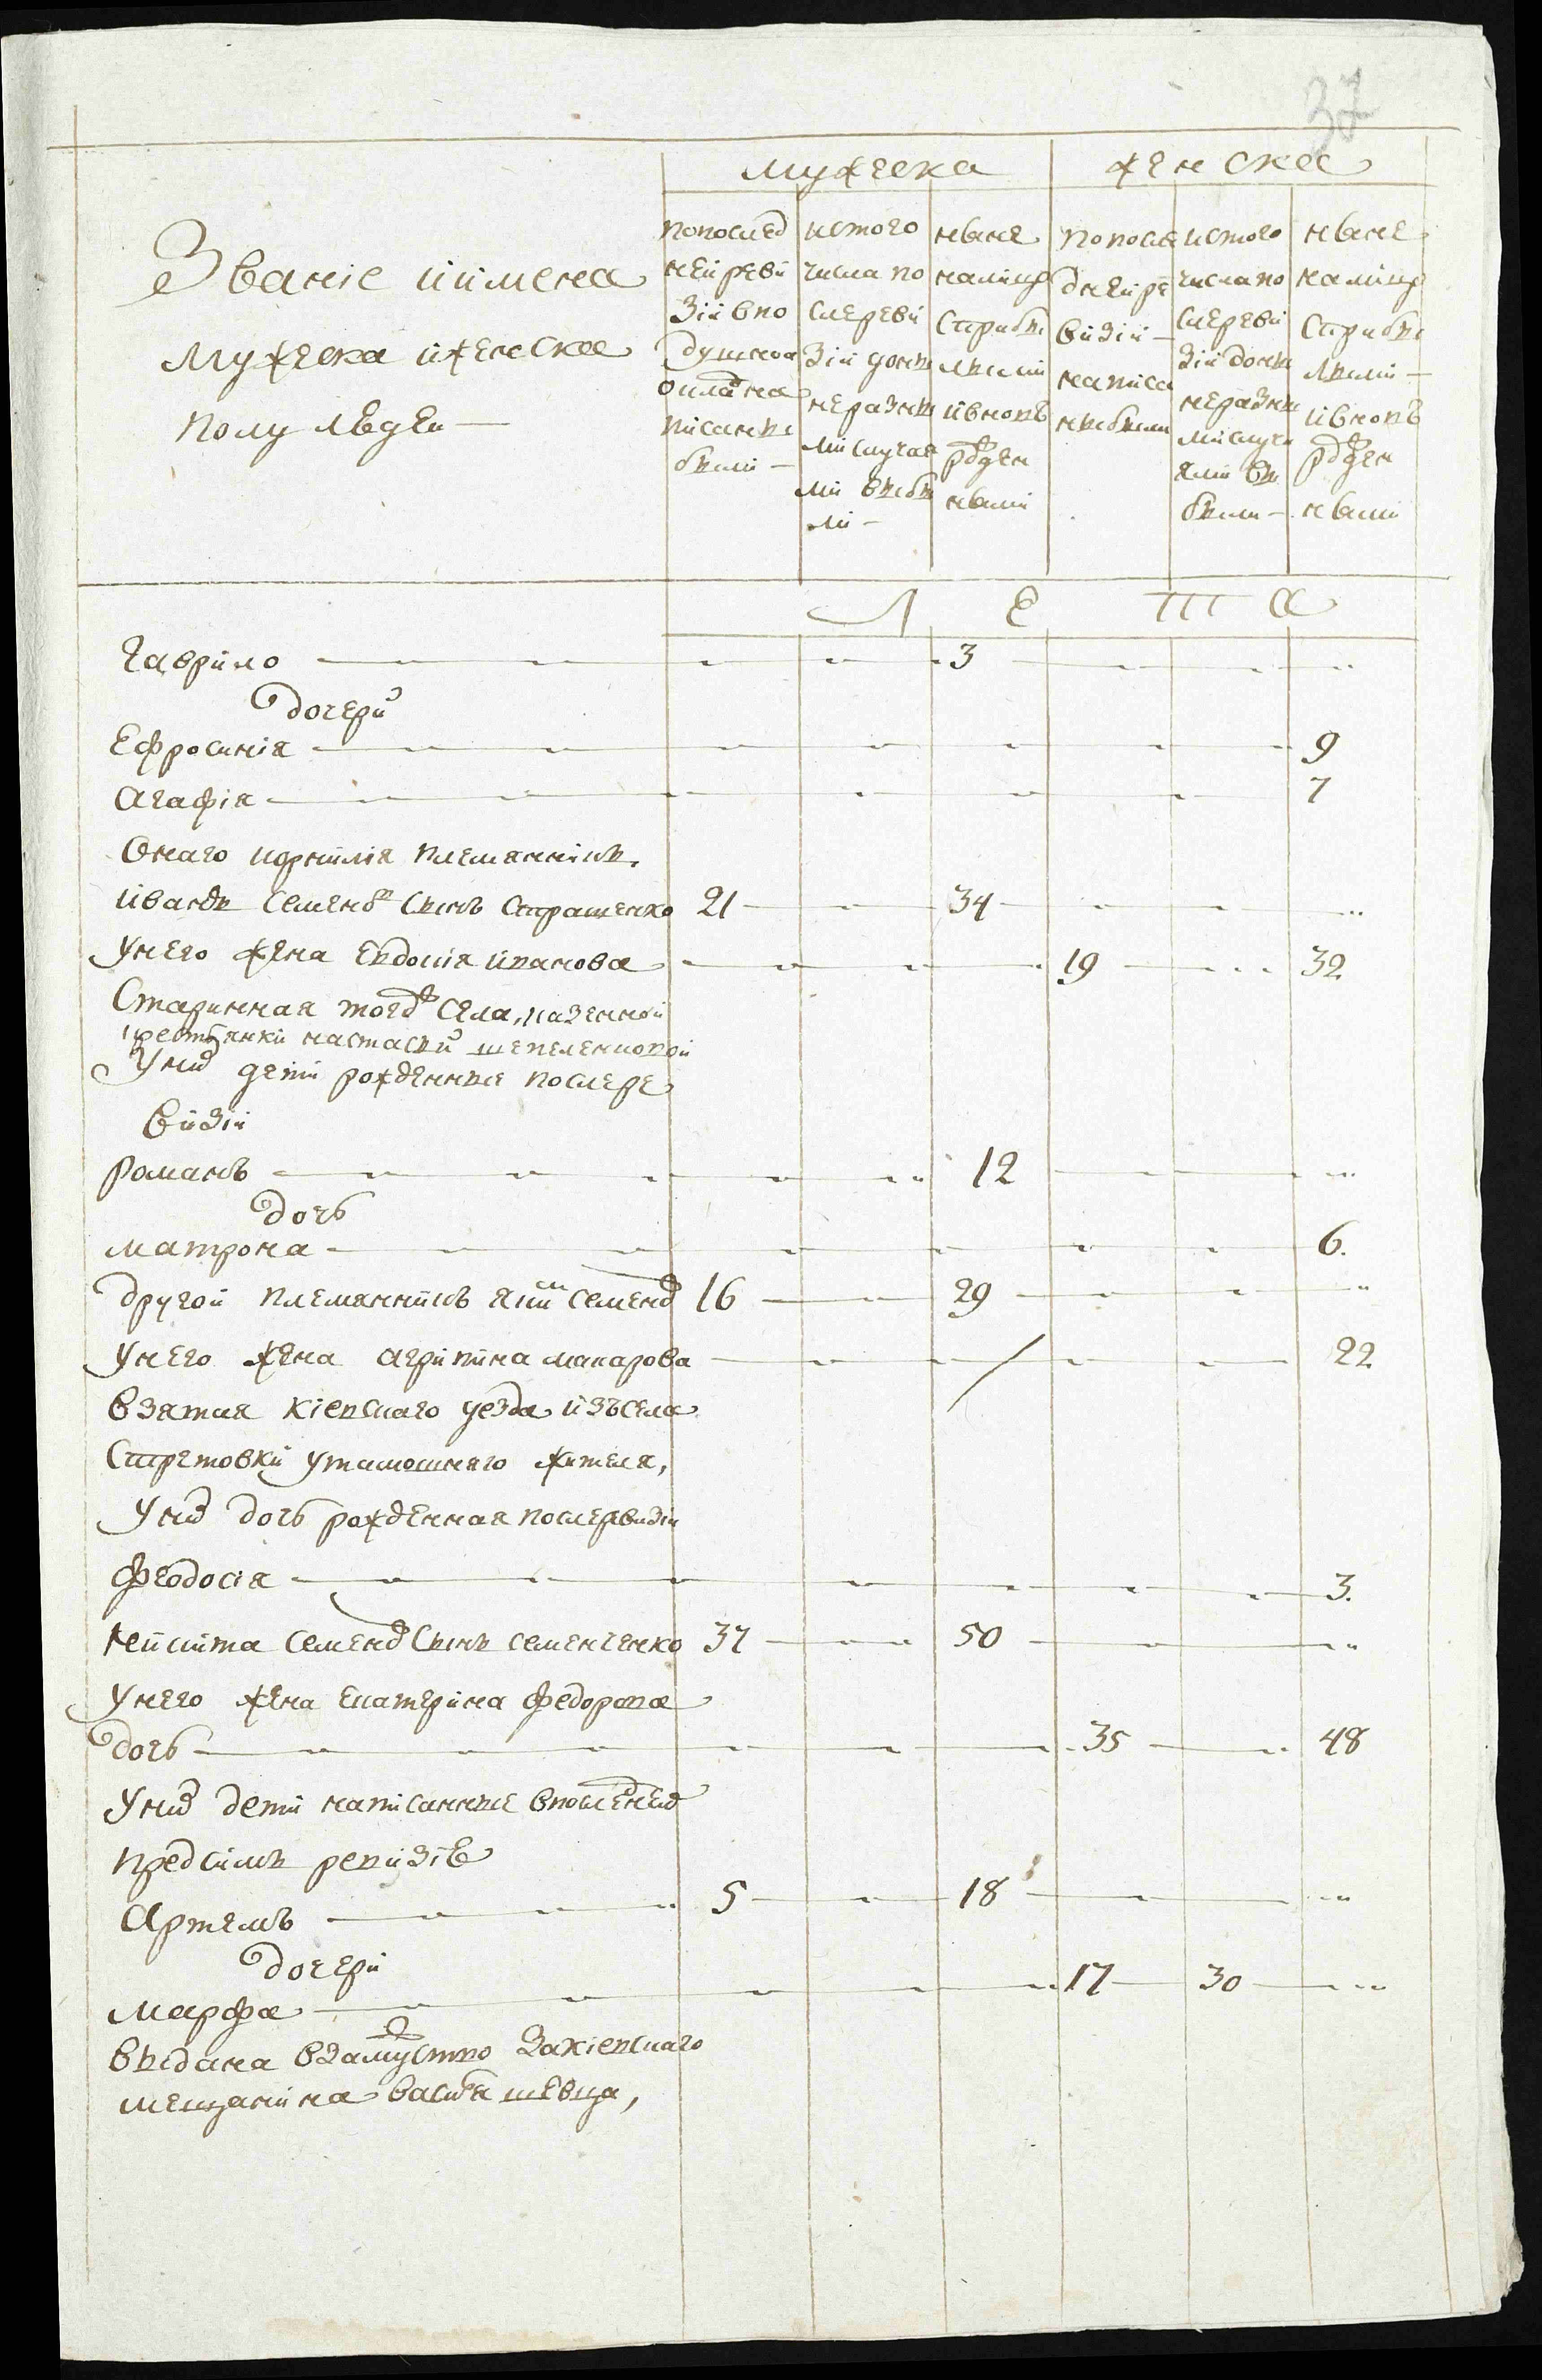 37
мужеска женска
Званiе иимена
мужеска иженска
полу людеи —
попослед
неи реви
зiи впо
душнои
окладна
писаны
были —
истого
числа по
слереви
зiи доны
неразны
ми случая
ми выбы
ли —
ныне
налицо
старыбы
лыми
ивновь
рожден
ными
попосле
днеи ре
визiи —
написа
ныбыли
истого
числа по
слереви
зiи доны
неразны
ми случа
ями вы
были —
ныне
налицо
старыбы
лыми —
ивновь
рожден
ными
Л Е Т А
Гаврило 3
дочери
Ефросинiя 9
Агафiя 7
Онаго корнилiя племянникъ
иванъ семеновъ сынъ страшенко 21 34
унего жена Евдокiя иванова 19 32
Старинная тогож села казенной
крестьянки настасьи шепеленковой
Уних дети рожденные послере
визiи
романъ 12
дочь
матрона 6.
другой племянникъ яким семенов 16 29
унего жена агрипина макарова 22
взятая кiевскаго уезда изъ села
Стретовки утамошняго жителя,
Уних дочь рожденная послеревизiи
феодосiя 3.
Никита семенов сынъ семенченко 37 50
унего жена Екатерина федорова
дочь 35 48
Уних дети написанные впоследней
предсимъ ревизiе
Артемъ 5 18
дочери
марфа 17 30
выдана взамужство закiевскаго
мещанина василя шевца,